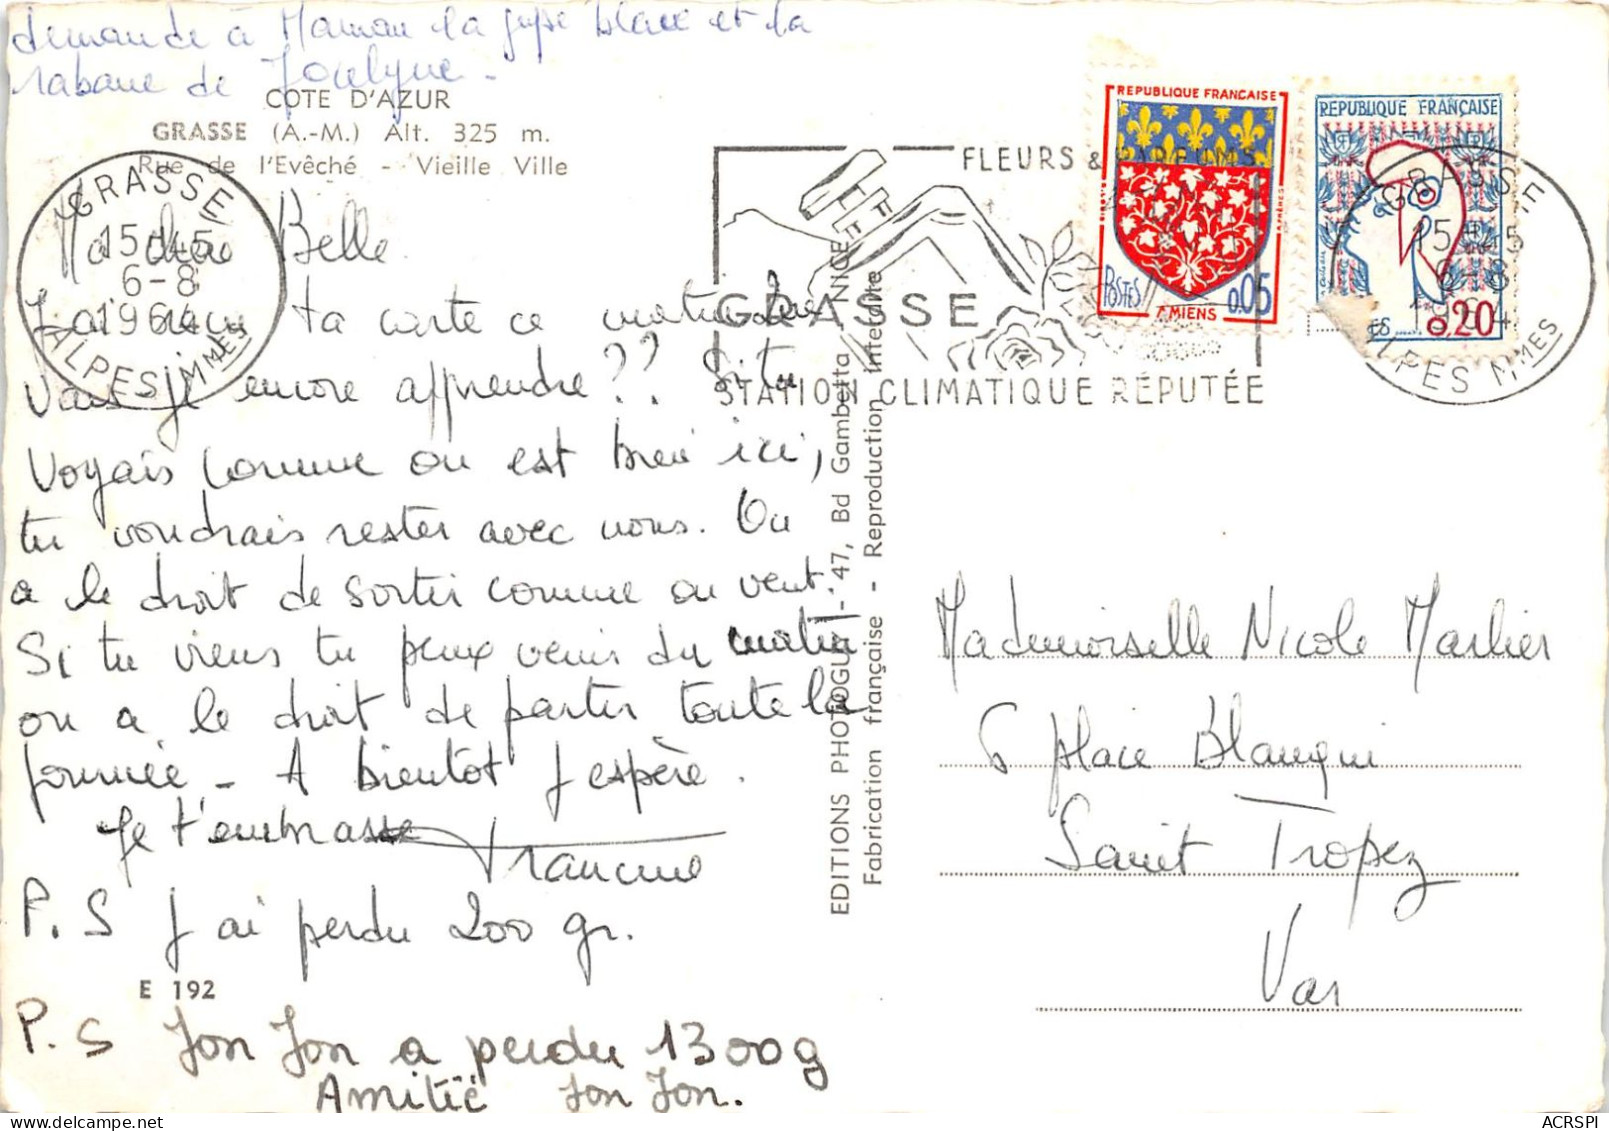 demande à Maman la jupe blanche et la
rabane de Jocelyne -
COTE D'AZUR
GRASSE (A.-M.) Alt. 325 m.
Rue de l'Evêché - Vieille Ville
GRASSE
15H45
6-8
1964
ALPES MMES
REPUBLIQUE FRANÇAISE
POSTES
0.05
AMIENS
REPUBLIQUE FRANÇAISE
ES
0.20
FLEURS & PARFUMS
GRASSE
STATION CLIMATIQUE RÉPUTÉE
GRASSE
15H45
6-8
1964
ALPES MMES
Ma chère Belle
J'ai reçu ta carte ce matin. Que
vais je encore apprendre ?? Si tu
voyais comme on est bien ici,
tu voudrais rester avec nous. On
a le droit de sortir comme on veut.
Si tu viens tu peux venir du matin
on a le droit de partir toute la
journée - A bientôt j'espère.
Je t'embrasse
Francine
P.S J'ai perdu 200 gr.
E 192
P.S Jon Jon a perdu 1300g
Amitié Jon Jon.
EDITIONS PHOTOGUY - 47, Bd Gambetta NICE
Fabrication française - Reproduction interdite
Mademoiselle Nicole Marlier
6 place Blanqui
Saint Tropez
Var
ACRSPI